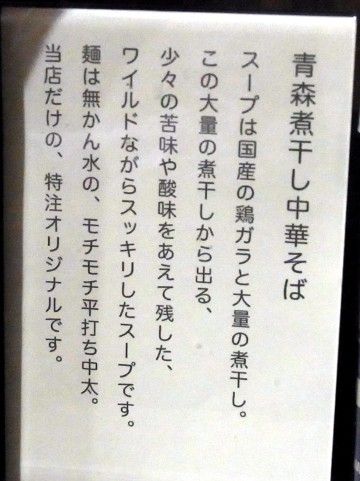 青森煮干し中華そば
スープは国産の鶏ガラと大量の煮干し。
この大量の煮干しから出る、
少々の苦味や酸味をあえて残した、
ワイルドながらスッキリしたスープです。
麺は無かん水の、モチモチ平打ち中太。
当店だけの、特注オリジナルです。